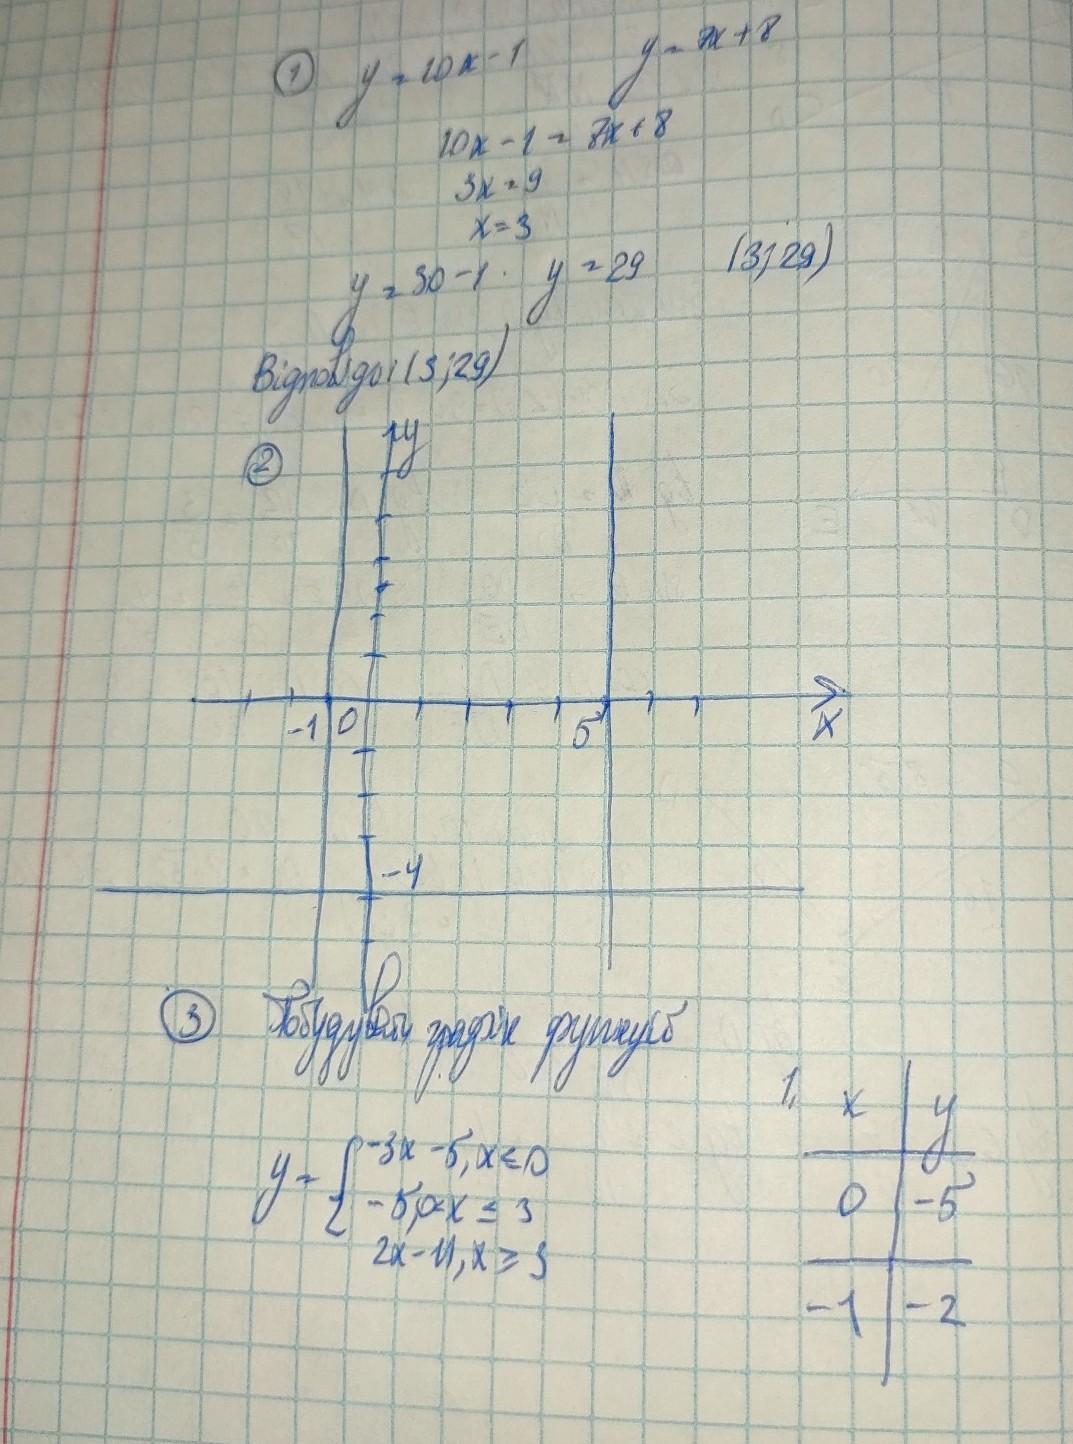 ① y = 10x - 1 y = 7x + 8
10x - 1 = 7x + 8
3x = 9
x = 3
y = 30 - 1. y = 29 (3; 29)
Відповідь: (3; 29)
② y
-1 0 5 x
-4
③ Побудувати графік функції
y = { -3x - 5, x ≤ 0
-5, 0 < x ≤ 3
2x - 11, x ≥ 3
1, x y
0 -5
-1 -2